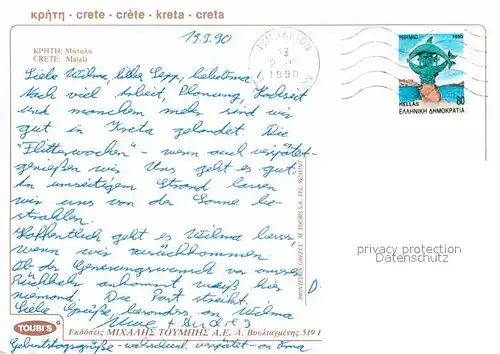 κρήτη · crete · crète · kreta · creta
19.9.90
ΚΡΗΤΗ: Μάταλα
CRETE: Matala
13
1990
1990
HELLAS 80
ΕΛΛΗΝΙΚΗ ΔΗΜΟΚΡΑΤΙΑ
Liebe Wilma, lieber Sepp, liebe Oma
Nach viel Arbeit, Planung, Hochzeit
und manchem mehr sind wir
gut in Kreta gelandet. Die
"Flitterwochen" - wenn auch verspätet-
genießen wir. Uns geht es gut.
An unseitigem Strand lassen
wir uns von der Sonne be-
strahlen.
Hoffentlich geht es Wilma besser,
wenn wir zurückkommen.
Ob der Genesungswunsch vor unserer
Rückkehr ankommt, weiß hier
niemand. Die Post streikt.
Liebe Grüße, besonders an Wilma
+ Andrea
Geburtstagsgrüße - wahrscheinl. verspätet - an Oma
privacy protection
Datenschutz
PRINTED IN GREECE M. TOUBIS S.A. TEL.
D.
TOUBI'S
Εκδόσεις ΜΙΧΑΛΗΣ ΤΟΥΜΠΗΣ Α.Ε. Λ. Βουλιαγμένης 519